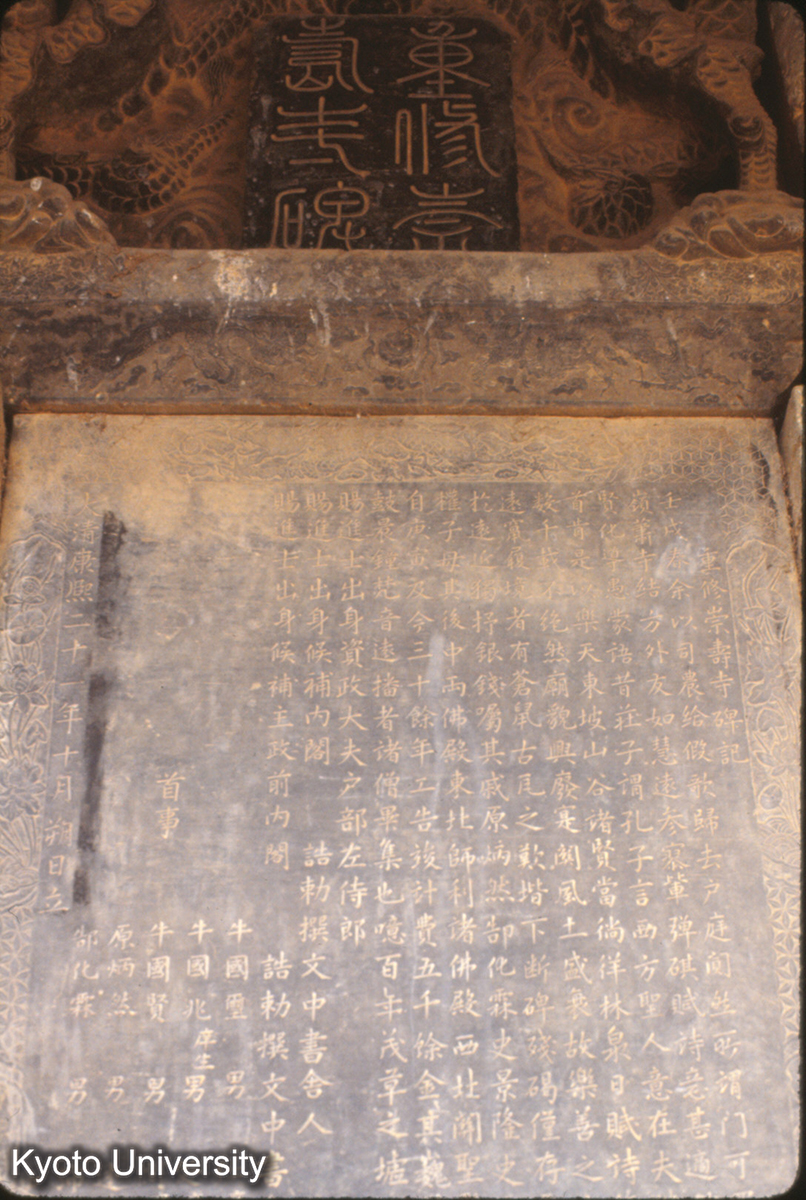 重修崇
壽寺碑
重修崇壽寺碑記
壬戌 余以司農給假歌歸去戶庭闃然所謂门可
嶺蕭寺結方外友如慧遠參寥輩彈碁賦詩意甚適
賢化身禹蒙語昔莊子謂孔子言西方聖人意在夫
首肯是 樂天東坡山谷诸賢當倘徉林泉日賦詩
數千載不絕然廟貌興廢寔闗風土盛衰故樂善之
遠 履 者有蒼鼠古瓦之歎堦下断碑殘碣僅存
於遠近獨抒銀錢囑其戚原炳然郜化霖史景隆史
權子母其後中両佛殿東北師利諸佛殿西北闗聖
自庚寅及今三十餘年工告竣計費五千餘金其巍
鼓晨鐘梵音遠播者诸僧畢集也噫百年茂草之墟
賜進士出身資政大夫户部左侍郎
賜進士出身候補内閣 誥勅撰文中書舍人
賜進士出身候補主政前内閣 誥勅撰文中書
首事
牛國璽 男
牛國兆 庠生男
牛國賢 男
原炳然 男
郜化霖 男
大清康熙二十一年十月朔日立
Kyoto University